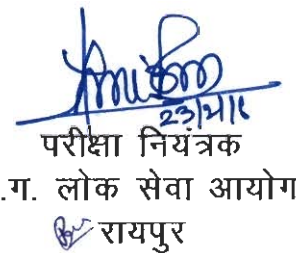 23/2/16
परीक्षा नियंत्रक
.ग. लोक सेवा आयोग
रायपुर